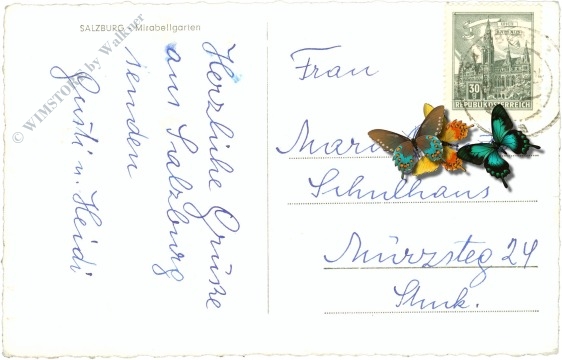 SALZBURG - Mirabellgarten
Herzliche Grüsse
aus Salzburg
senden
Gusti u. Heidi
Frau
Schulhaus
Mürzsteg 24
Stmk.
30
REPUBLIK ÖSTERREICH
© WIMSTORE by Walkner